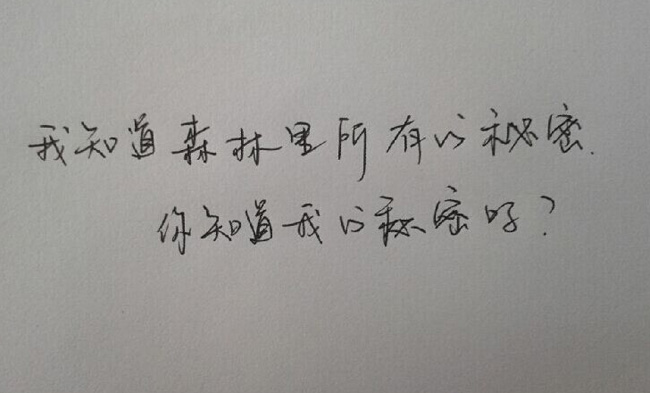 我知道森林里所有的秘密.
你知道我的秘密吗?